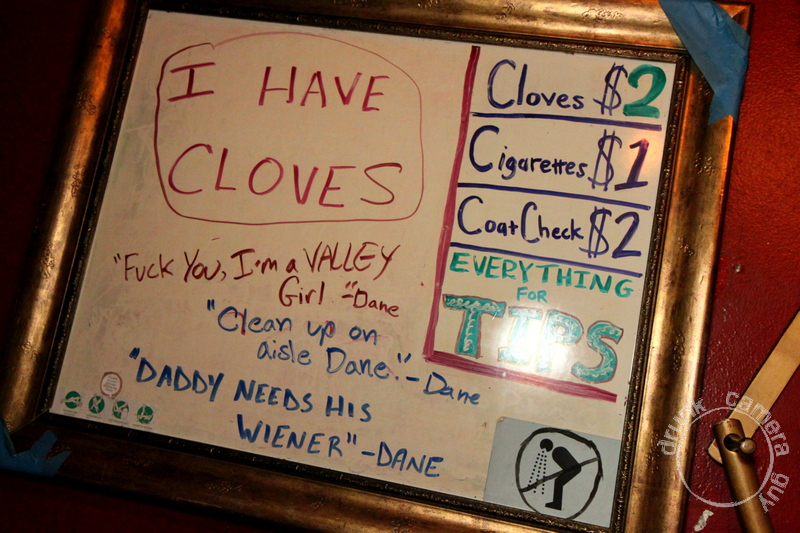 I HAVE
CLOVES
Cloves $2
Cigarettes $1
Coat Check $2
EVERYTHING
FOR
TIPS
"Fuck You, I'm a VALLEY
Girl." -Dane
"Clean up on
aisle Dane." -Dane
"DADDY NEEDS HIS
WIENER" -DANE
drunk camera guy